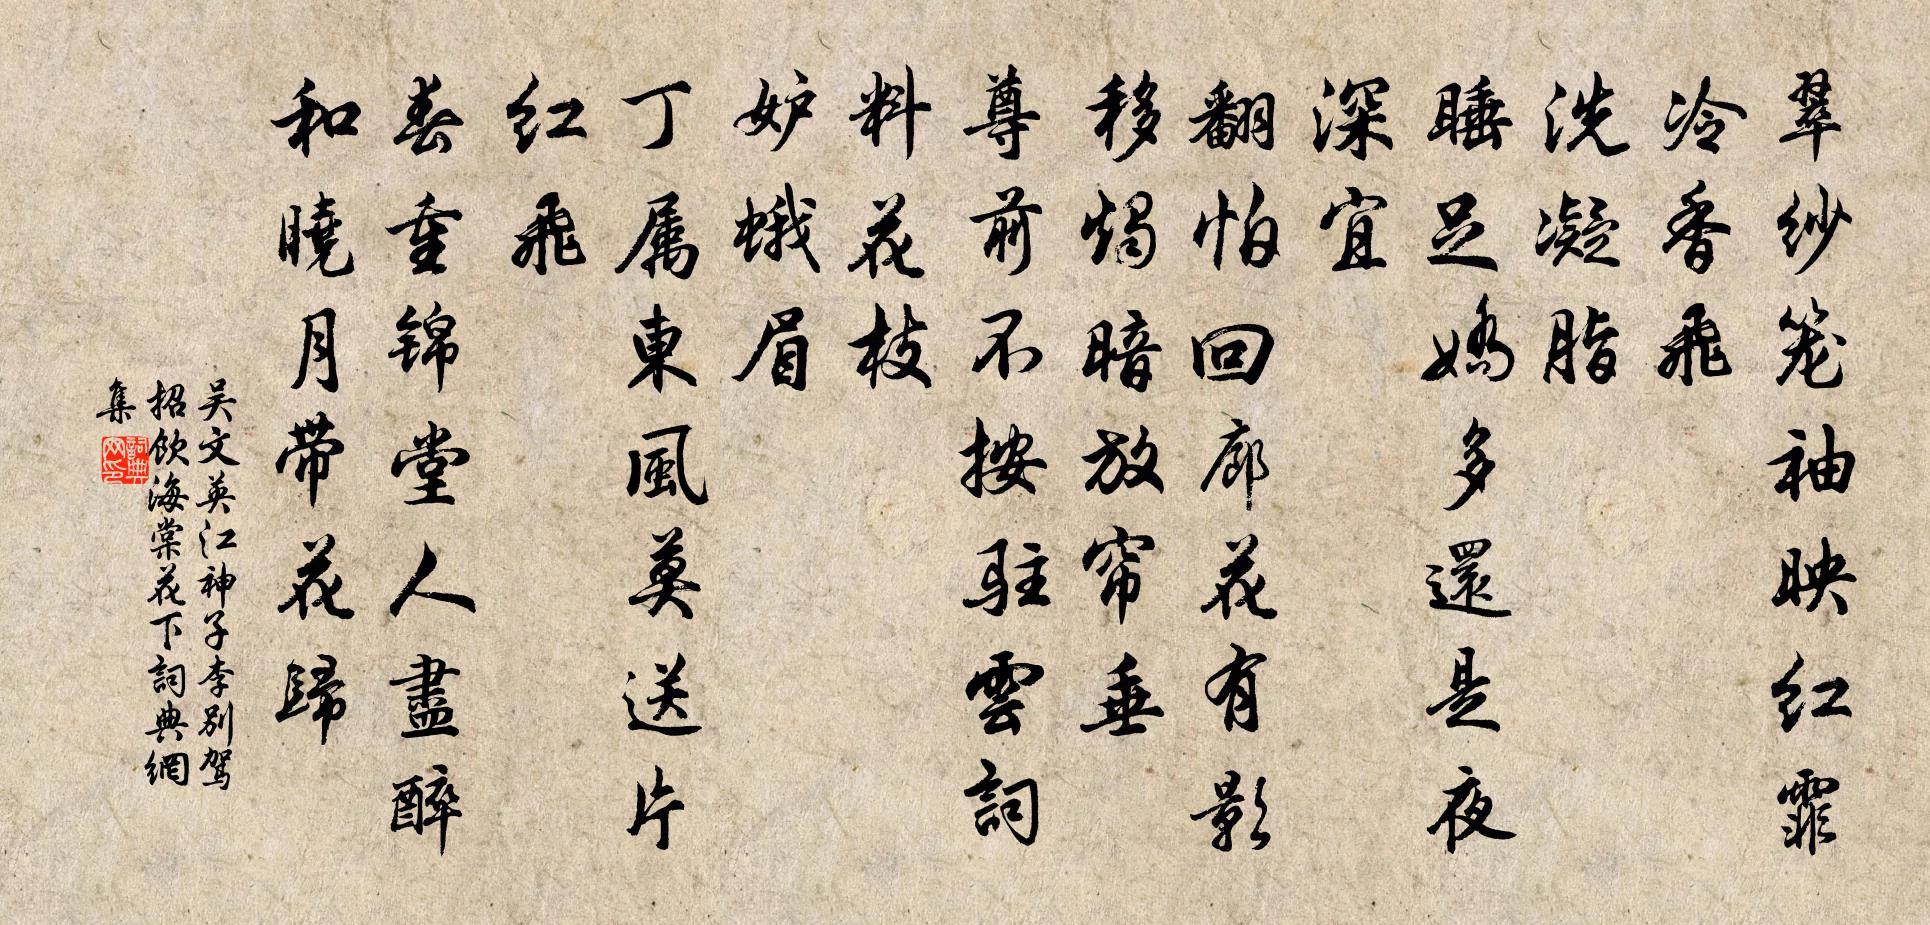 翠纱笼袖映红霏
冷香飛
洗凝脂
睡足嬌多還是夜
深宜
翻怕回廊花有影
移燭暗放帘垂
尊前不按駐雲詞
料花枝
妒蛾眉
丁属東風莫送片
红飛
春重锦堂人盡醉
和曉月帶花歸
吴文英江神子李别驾
招飲海棠花下詞典網
集
詞典网印